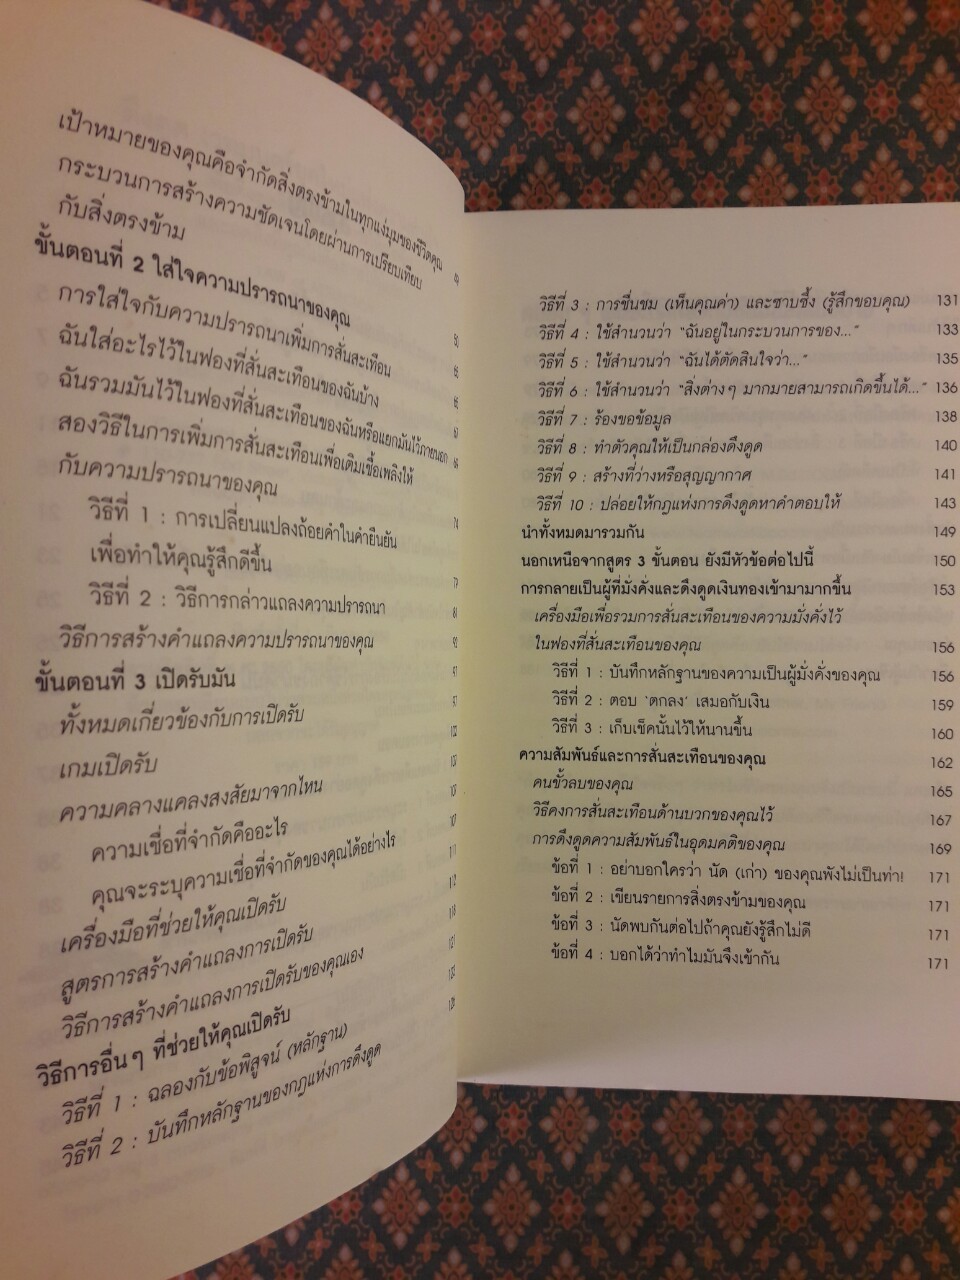 เป้าหมายของคุณคือจำกัดสิ่งตรงข้ามในทุกแง่มุมของชีวิตคุณ
กระบวนการสร้างความชัดเจนโดยผ่านการเปรียบเทียบ
กับสิ่งตรงข้าม
ขั้นตอนที่ 2 ใส่ใจความปรารถนาของคุณ
การใส่ใจกับความปรารถนาเพิ่มการสั่นสะเทือน
ฉันใส่อะไรไว้ในฟองที่สั่นสะเทือนของฉันบ้าง
ฉันรวมมันไว้ในฟองที่สั่นสะเทือนของฉันหรือแยกมันไว้ภายนอก
สองวิธีในการเพิ่มการสั่นสะเทือนเพื่อเติมเชื้อเพลิงให้
กับความปรารถนาของคุณ
วิธีที่ 1 : การเปลี่ยนแปลงถ้อยคำในคำยืนยัน
เพื่อทำให้คุณรู้สึกดีขึ้น
วิธีที่ 2 : วิธีการกล่าวแถลงความปรารถนา
วิธีการสร้างคำแถลงความปรารถนาของคุณ
ขั้นตอนที่ 3 เปิดรับมัน
ทั้งหมดเกี่ยวข้องกับการเปิดรับ
เกมเปิดรับ
ความคลางแคลงสงสัยมาจากไหน
ความเชื่อที่จำกัดคืออะไร
คุณจะระบุความเชื่อที่จำกัดของคุณได้อย่างไร
เครื่องมือที่ช่วยให้คุณเปิดรับ
สูตรการสร้างคำแถลงการเปิดรับ
วิธีการสร้างคำแถลงการเปิดรับของคุณเอง
วิธีการอื่นๆ ที่ช่วยให้คุณเปิดรับ
วิธีที่ 1 : ฉลองกับข้อพิสูจน์ (หลักฐาน)
วิธีที่ 2 : บันทึกหลักฐานของกฎแห่งการดึงดูด
วิธีที่ 3 : การชื่นชม (เห็นคุณค่า) และซาบซึ้ง (รู้สึกขอบคุณ) 131
วิธีที่ 4 : ใช้สำนวนว่า “ฉันอยู่ในกระบวนการของ...” 133
วิธีที่ 5 : ใช้สำนวนว่า “ฉันได้ตัดสินใจว่า...” 135
วิธีที่ 6 : ใช้สำนวนว่า “สิ่งต่างๆ มากมายสามารถเกิดขึ้นได้...” 136
วิธีที่ 7 : ร้องขอข้อมูล 138
วิธีที่ 8 : ทำตัวคุณให้เป็นกล่องดึงดูด 140
วิธีที่ 9 : สร้างที่ว่างหรือสุญญากาศ 141
วิธีที่ 10 : ปล่อยให้กฎแห่งการดึงดูดหาคำตอบให้ 143
นำทั้งหมดมารวมกัน 149
นอกเหนือจากสูตร 3 ขั้นตอน ยังมีหัวข้อต่อไปนี้ 150
การกลายเป็นผู้ที่มั่งคั่งและดึงดูดเงินทองเข้ามามากขึ้น 153
เครื่องมือเพื่อรวมการสั่นสะเทือนของความมั่งคั่งไว้
ในฟองที่สั่นสะเทือนของคุณ 156
วิธีที่ 1 : บันทึกหลักฐานของความเป็นผู้มั่งคั่งของคุณ 156
วิธีที่ 2 : ตอบ ‘ตกลง’ เสมอกับเงิน 159
วิธีที่ 3 : เก็บเช็คนั้นไว้ให้นานขึ้น 160
ความสัมพันธ์และการสั่นสะเทือนของคุณ 162
คนขั้วลบของคุณ 165
วิธีคงการสั่นสะเทือนด้านบวกของคุณไว้ 167
การดึงดูดความสัมพันธ์ในอุดมคติของคุณ 169
ข้อที่ 1 : อย่าบอกใครว่า นัด (เก่า) ของคุณพังไม่เป็นท่า! 171
ข้อที่ 2 : เขียนรายการสิ่งตรงข้ามของคุณ 171
ข้อที่ 3 : นัดพบกันต่อไปถ้าคุณยังรู้สึกไม่ดี 171
ข้อที่ 4 : บอกได้ว่าทำไมมันจึงเข้ากัน 171